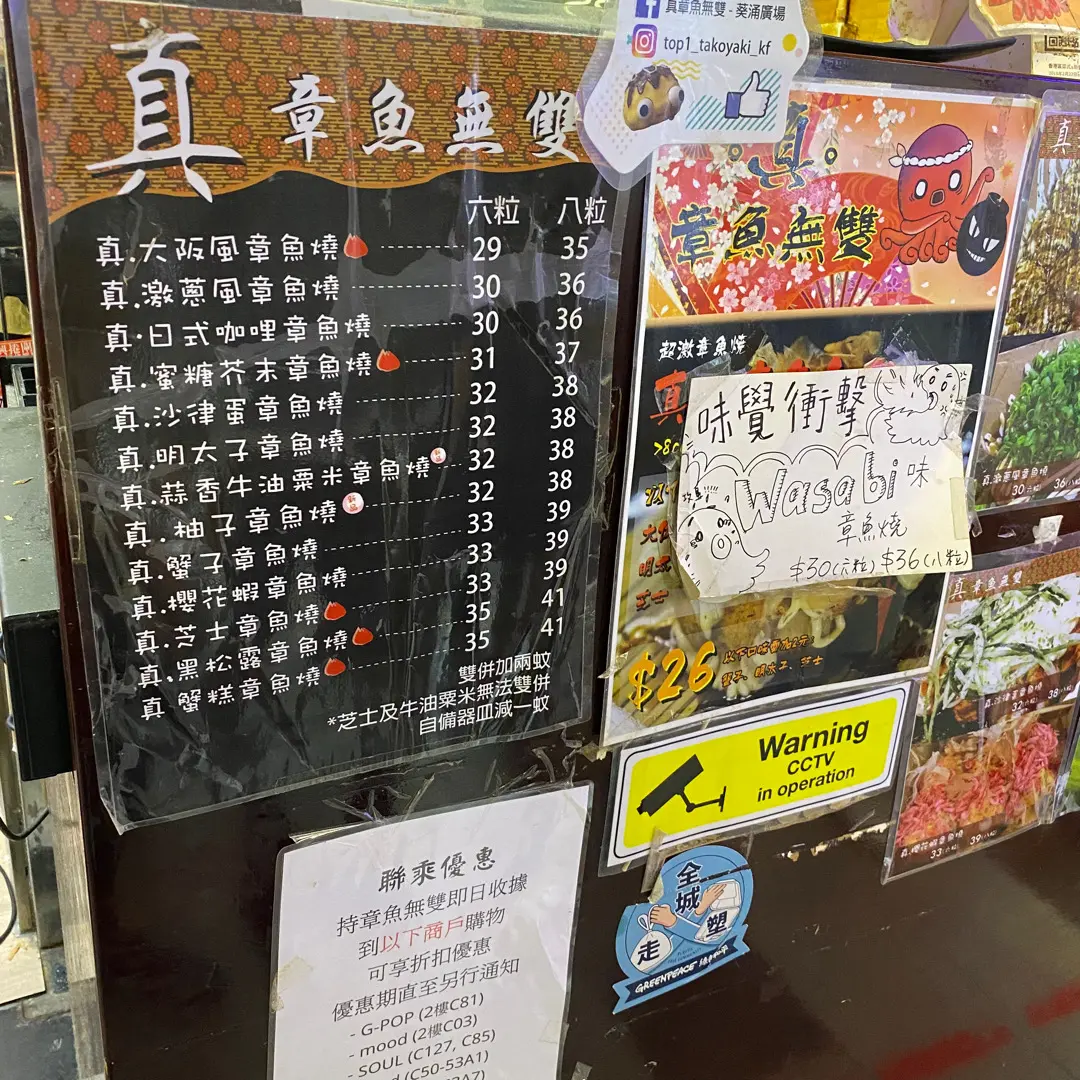 真 章魚無雙
六粒 八粒
真.大阪風章魚燒 29 35
真.激蔥風章魚燒 30 36
真.日式咖哩章魚燒 30 36
真.蜜糖芥末章魚燒 31 37
真.沙律蛋章魚燒 32 38
真.明太子章魚燒 32 38
真.蒜香牛油粟米章魚燒 32 38
真.柚子章魚燒 32 38
真.蟹子章魚燒 33 39
真.櫻花蝦章魚燒 33 39
真.芝士章魚燒 33 39
真.黑松露章魚燒 35 41
真 蟹糕章魚燒 35 41
雙併加兩蚊
*芝士及牛油粟米無法雙併
自備器皿減一蚊
真章魚無雙 - 葵涌廣場
top1_takoyaki_kf
真
章魚無雙
超激章魚燒
真
味覺衝擊
Wasabi 味
章魚燒
$30(六粒) $36(八粒)
$26
以下口味需加2元:
蟹子、明太子、芝士
Warning
CCTV
in operation
全城
走塑
GREENPEACE 綠色和平
聯乘優惠
持章魚無雙即日收據
到以下商戶購物
可享折扣優惠
優惠期直至另行通知
- G-POP (2樓C81)
- mood (2樓C03)
- SOUL (C127, C85)
(C50-53A1)
真
真.激蔥風章魚燒
30(六粒) 36(八粒)
真 章魚無雙
真.沙律蛋章魚燒
32(六粒) 38(八粒)
真.櫻花蝦章魚燒
33(六粒) 39(八粒)